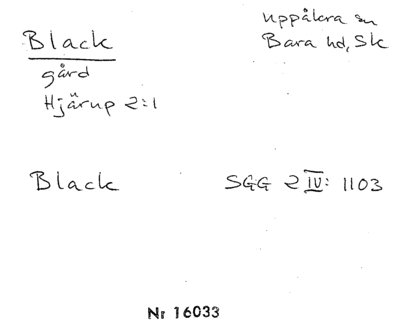 Black
gård
Hjärup 2:1
Uppåkra sn
Bara hd, Sk
Black
SGG 2 IV: 1103
Nr 16033